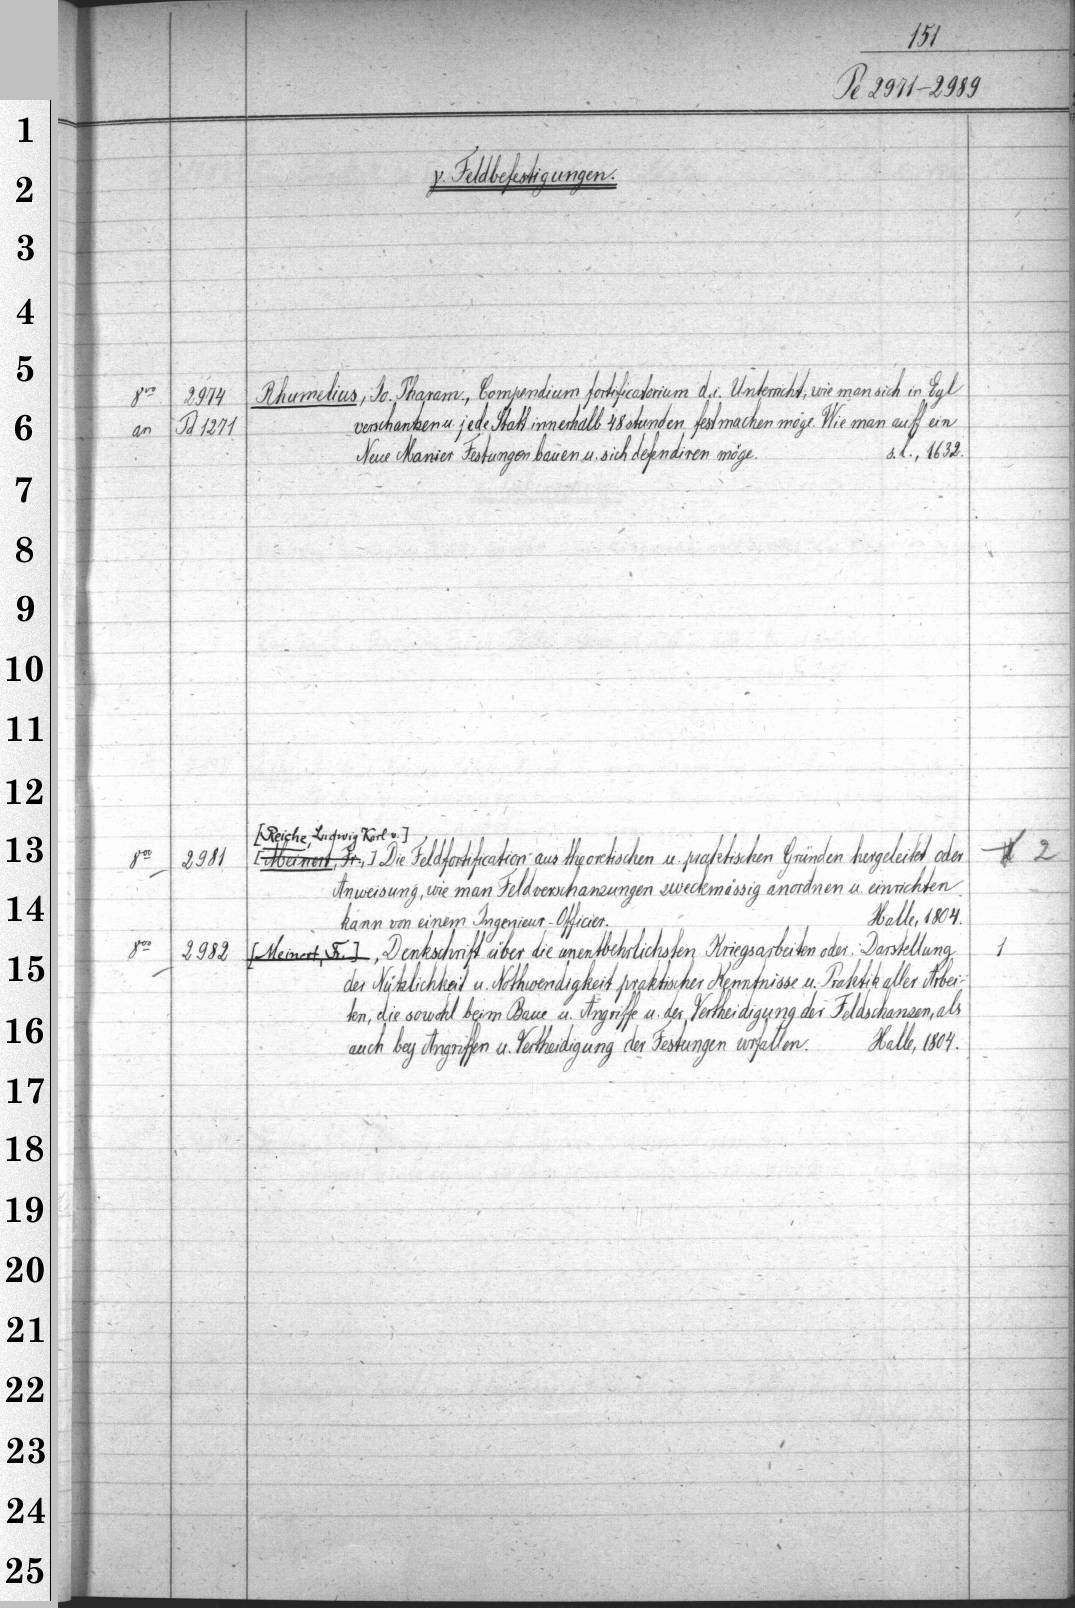 151
Pe 2971-2989
1
2
3
4
5
6
7
8
9
10
11
12
13
14
15
16
17
18
19
20
21
22
23
24
25
γ. Feldbefestigungen.
8vo 2974 Rhumelius, Jo. Pharam., Compendium fortificatorium d. i. Unterricht, wie man sich in Egl
an Pd 1271 verschanken u. jede Statt innerhalb 48 stunden fest machen möge. Wie man auff ein
Neue Manier Festungen bauen u. sich defendiren möge. s. l., 1632.
[Reiche, Ludwig Karl v.]
8vo 2981 [Meinert, Fr.,] Die Feldfortification aus theoretischen u. praktischen Gründen hergeleitet oder 2
Anweisung, wie man Feldverschanzungen zweckmässig anordnen u. einrichten
kann von einem Ingenieur-Officier. Halle, 1804.
8vo 2982 [Meinert, Fr.], Denkschrift über die unentbehrlichsten Kriegsarbeiten oder Darstellung 1
der Nützlichkeit u. Nothwendigkeit praktischer Kenntnisse u. Praktik aller Arbei-
ten, die sowohl beim Baue u. Angriffe u. der Vertheidigung der Feldschanzen, als
auch bey Angriffen u. Vertheidigung der Festungen vorfallen. Halle, 1804.